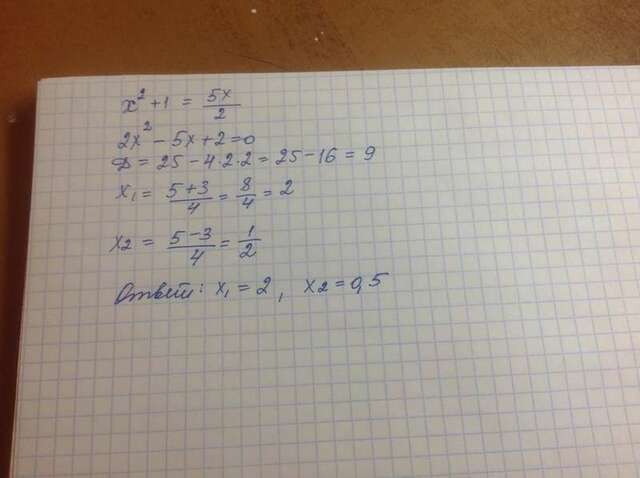 x² + 1 = 5x/2
2x² - 5x + 2 = 0
D = 25 - 4·2·2 = 25 - 16 = 9
x₁ = 5+3/4 = 8/4 = 2
x₂ = 5-3/4 = 1/2
Ответ: x₁ = 2, x₂ = 0,5